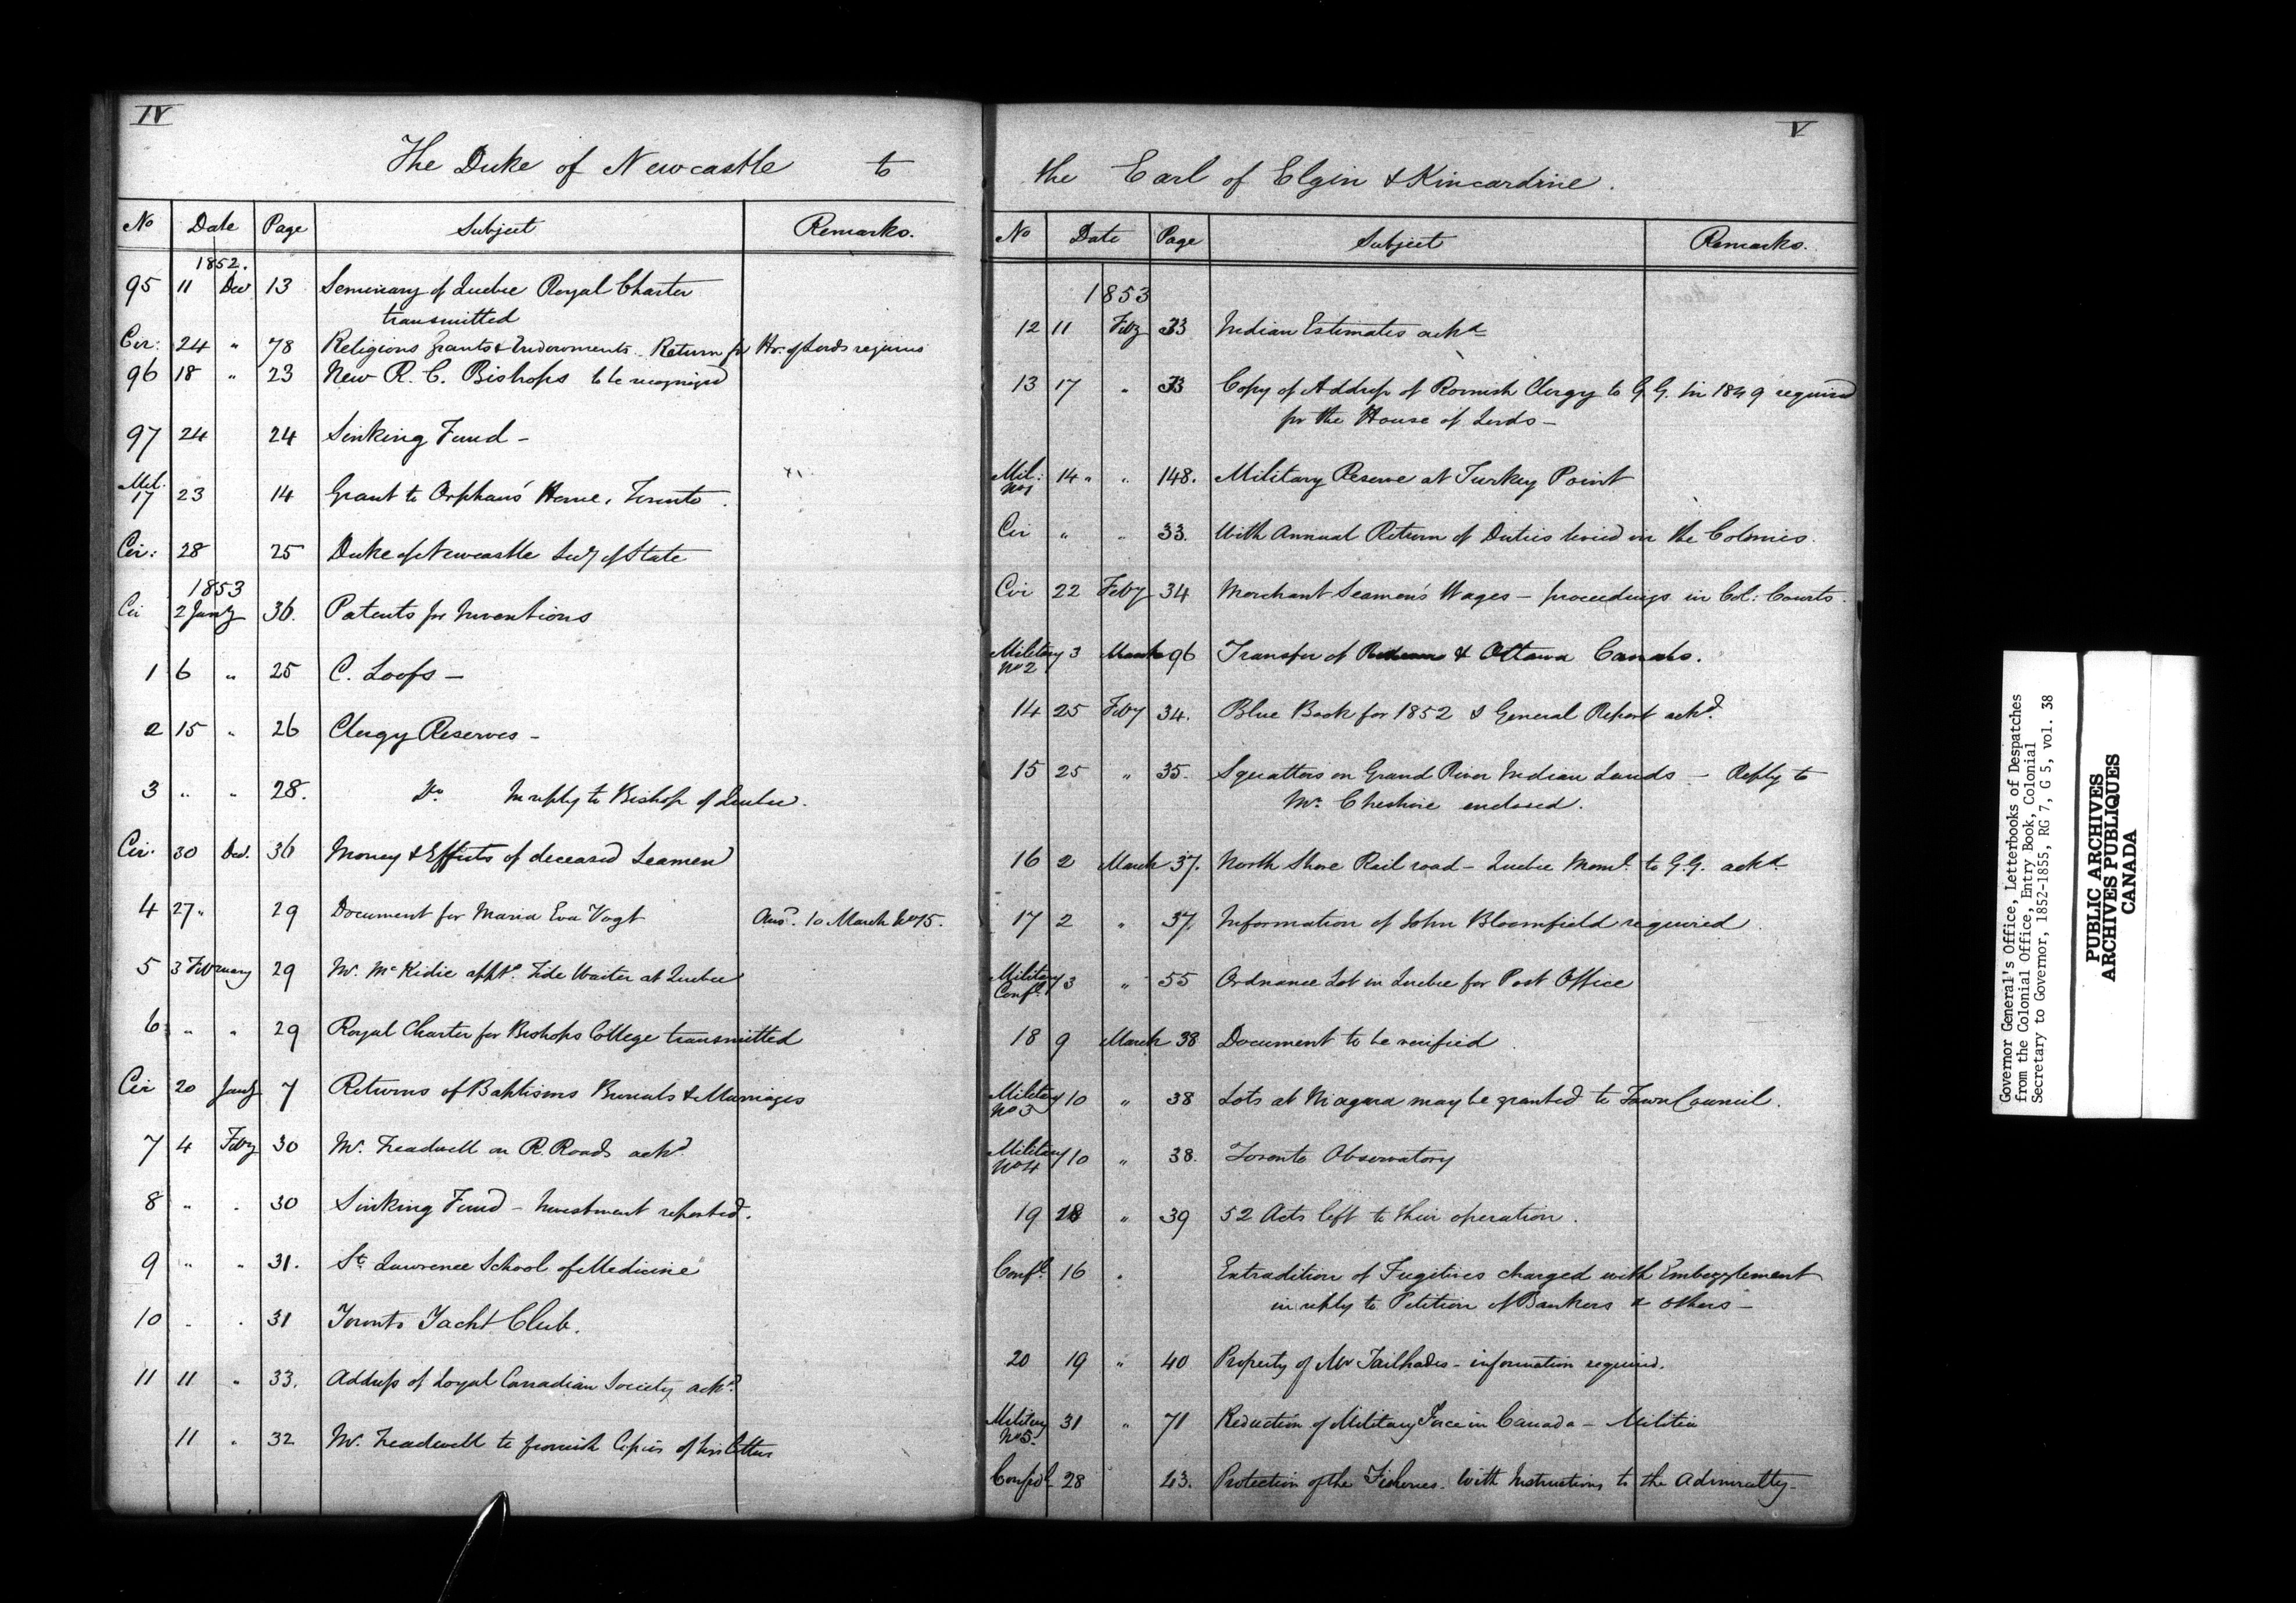 IV
The Duke of Newcastle to
No Date Page Subject Remarks.
1852.
95 11 Decr 13 Seminary of Quebec Royal Charter
transmitted
Cir: 24 " 78 Religious grants & Endowments. Return for Ho. of Lords required
96 18 " 23 New R. C. Bishops to be recognized
97 24 24 Sinking Fund -
Mil.
17 23 14 Grant to Orphans' Home, Toronto.
Cir: 28 25 Duke of Newcastle Secy of State
1853
Cir 2 Jany 36. Patents for Inventions
1 6 " 25 C. Loofs -
2 15 " 26 Clergy Reserves -
3 " " 28. Do. In reply to Bishop of Quebec.
Cir. 30 Decr. 36 Money & Effects of deceased Seamen
4 27 " 29 Document for Maria Eva Vogt Ansd. 10 March No 15.
5 3 February 29 Mr. McKidie apptd. Tide Waiter at Quebec
6 " " 29 Royal Charter for Bishops College transmitted
Cir 20 Jany 7 Returns of Baptisms Burials & Marriages
7 4 Feby 30 Mr. Treadwell on R. Roads ackd
8 " . 30 Sinking Fund - Investment reported.
9 " " 31. St. Lawrence School of Medicine
10 . . 31 Toronto Yacht Club.
11 11 " 33. Address of Loyal Canadian Society ackd.
11 " 32 Mr. Treadwell to furnish Copies of his letters
V
the Earl of Elgin & Kincardine.
No Date Page Subject Remarks.
1853
12 11 Feby 33 Indian Estimates ackd
13 17 " 33 Copy of Address of Romish Clergy to G.G. in 1849 required
for the House of Lords -
Mil:
No 1 14 " " 148. Military Reserve at Turkey Point
Cir " " 33. With Annual Return of Duties levied in the Colonies.
Cir 22 Feby 34 Merchant Seamen's Wages - proceedings in Col: Courts.
Military
No 2 3 March 96 Transfer of & Ottawa Canals.
14 25 Feby 34. Blue Book for 1852 & General Report ackd.
15 25 " 35. Squatters on Grand River Indian Lands - Reply to
Mr. Cheshire enclosed.
16 2 March 37. North Shore Rail road - Quebec Meml. to G.G. ackd
17 2 " 37. Information of John Bloomfield required
Military
Confl. 3 " 55 Ordnance Lot in Quebec for Post Office
18 9 March 38 Document to be verified.
Military
No 3 10 " 38 Lots at Niagara may be granted to Town Council.
Military
No 4 10 " 38. Toronto Observatory
19 28 " 39 52 Acts left to their operation.
Confl. 16 " Extradition of Fugitives charged with Embezzlement
in reply to Petition of Bankers & others -
20 19 " 40 Property of Mr Tailhades - information required.
Military
No 5. 31 " 71 Reduction of Military Force in Canada - Militia
Confidl 28 43. Protection of the Fisheries. With Instructions to the Admiralty -
Governor General's Office, Letterbooks of Despatches
from the Colonial Office, Entry Book, Colonial
Secretary to Governor, 1852-1855, RG 7, G 5, vol. 38
PUBLIC ARCHIVES
ARCHIVES PUBLIQUES
CANADA